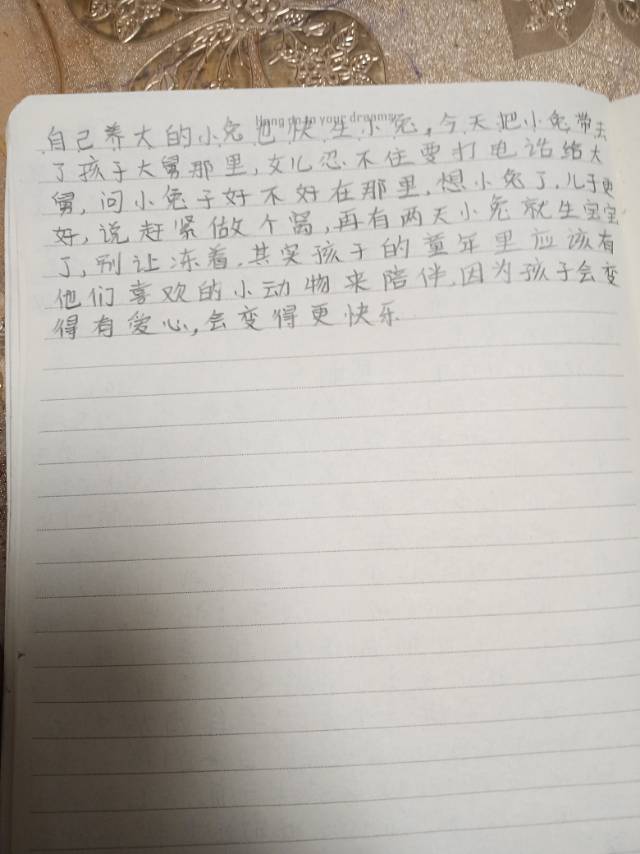 Hang on to your dreams
自己养大的小兔也快生小兔,今天把小兔带去
了孩子大舅那里,女儿忍不住要打电话给大
舅,问小兔子好不好在那里,想小兔了,儿子更
好,说赶紧做个窝,再有两天小兔就生宝宝
了,别让冻着.其实孩子的童年里应该有
他们喜欢的小动物来陪伴,因为孩子会变
得有爱心,会变得更快乐